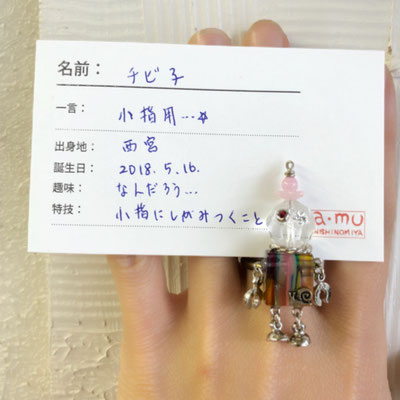 名前： チビ子
一言： 小指用…☆
出身地： 西宮
誕生日： 2018.5.16.
趣味： なんだろう…
特技： 小指にしがみつくこと
a·mu
NISHINOMIYA